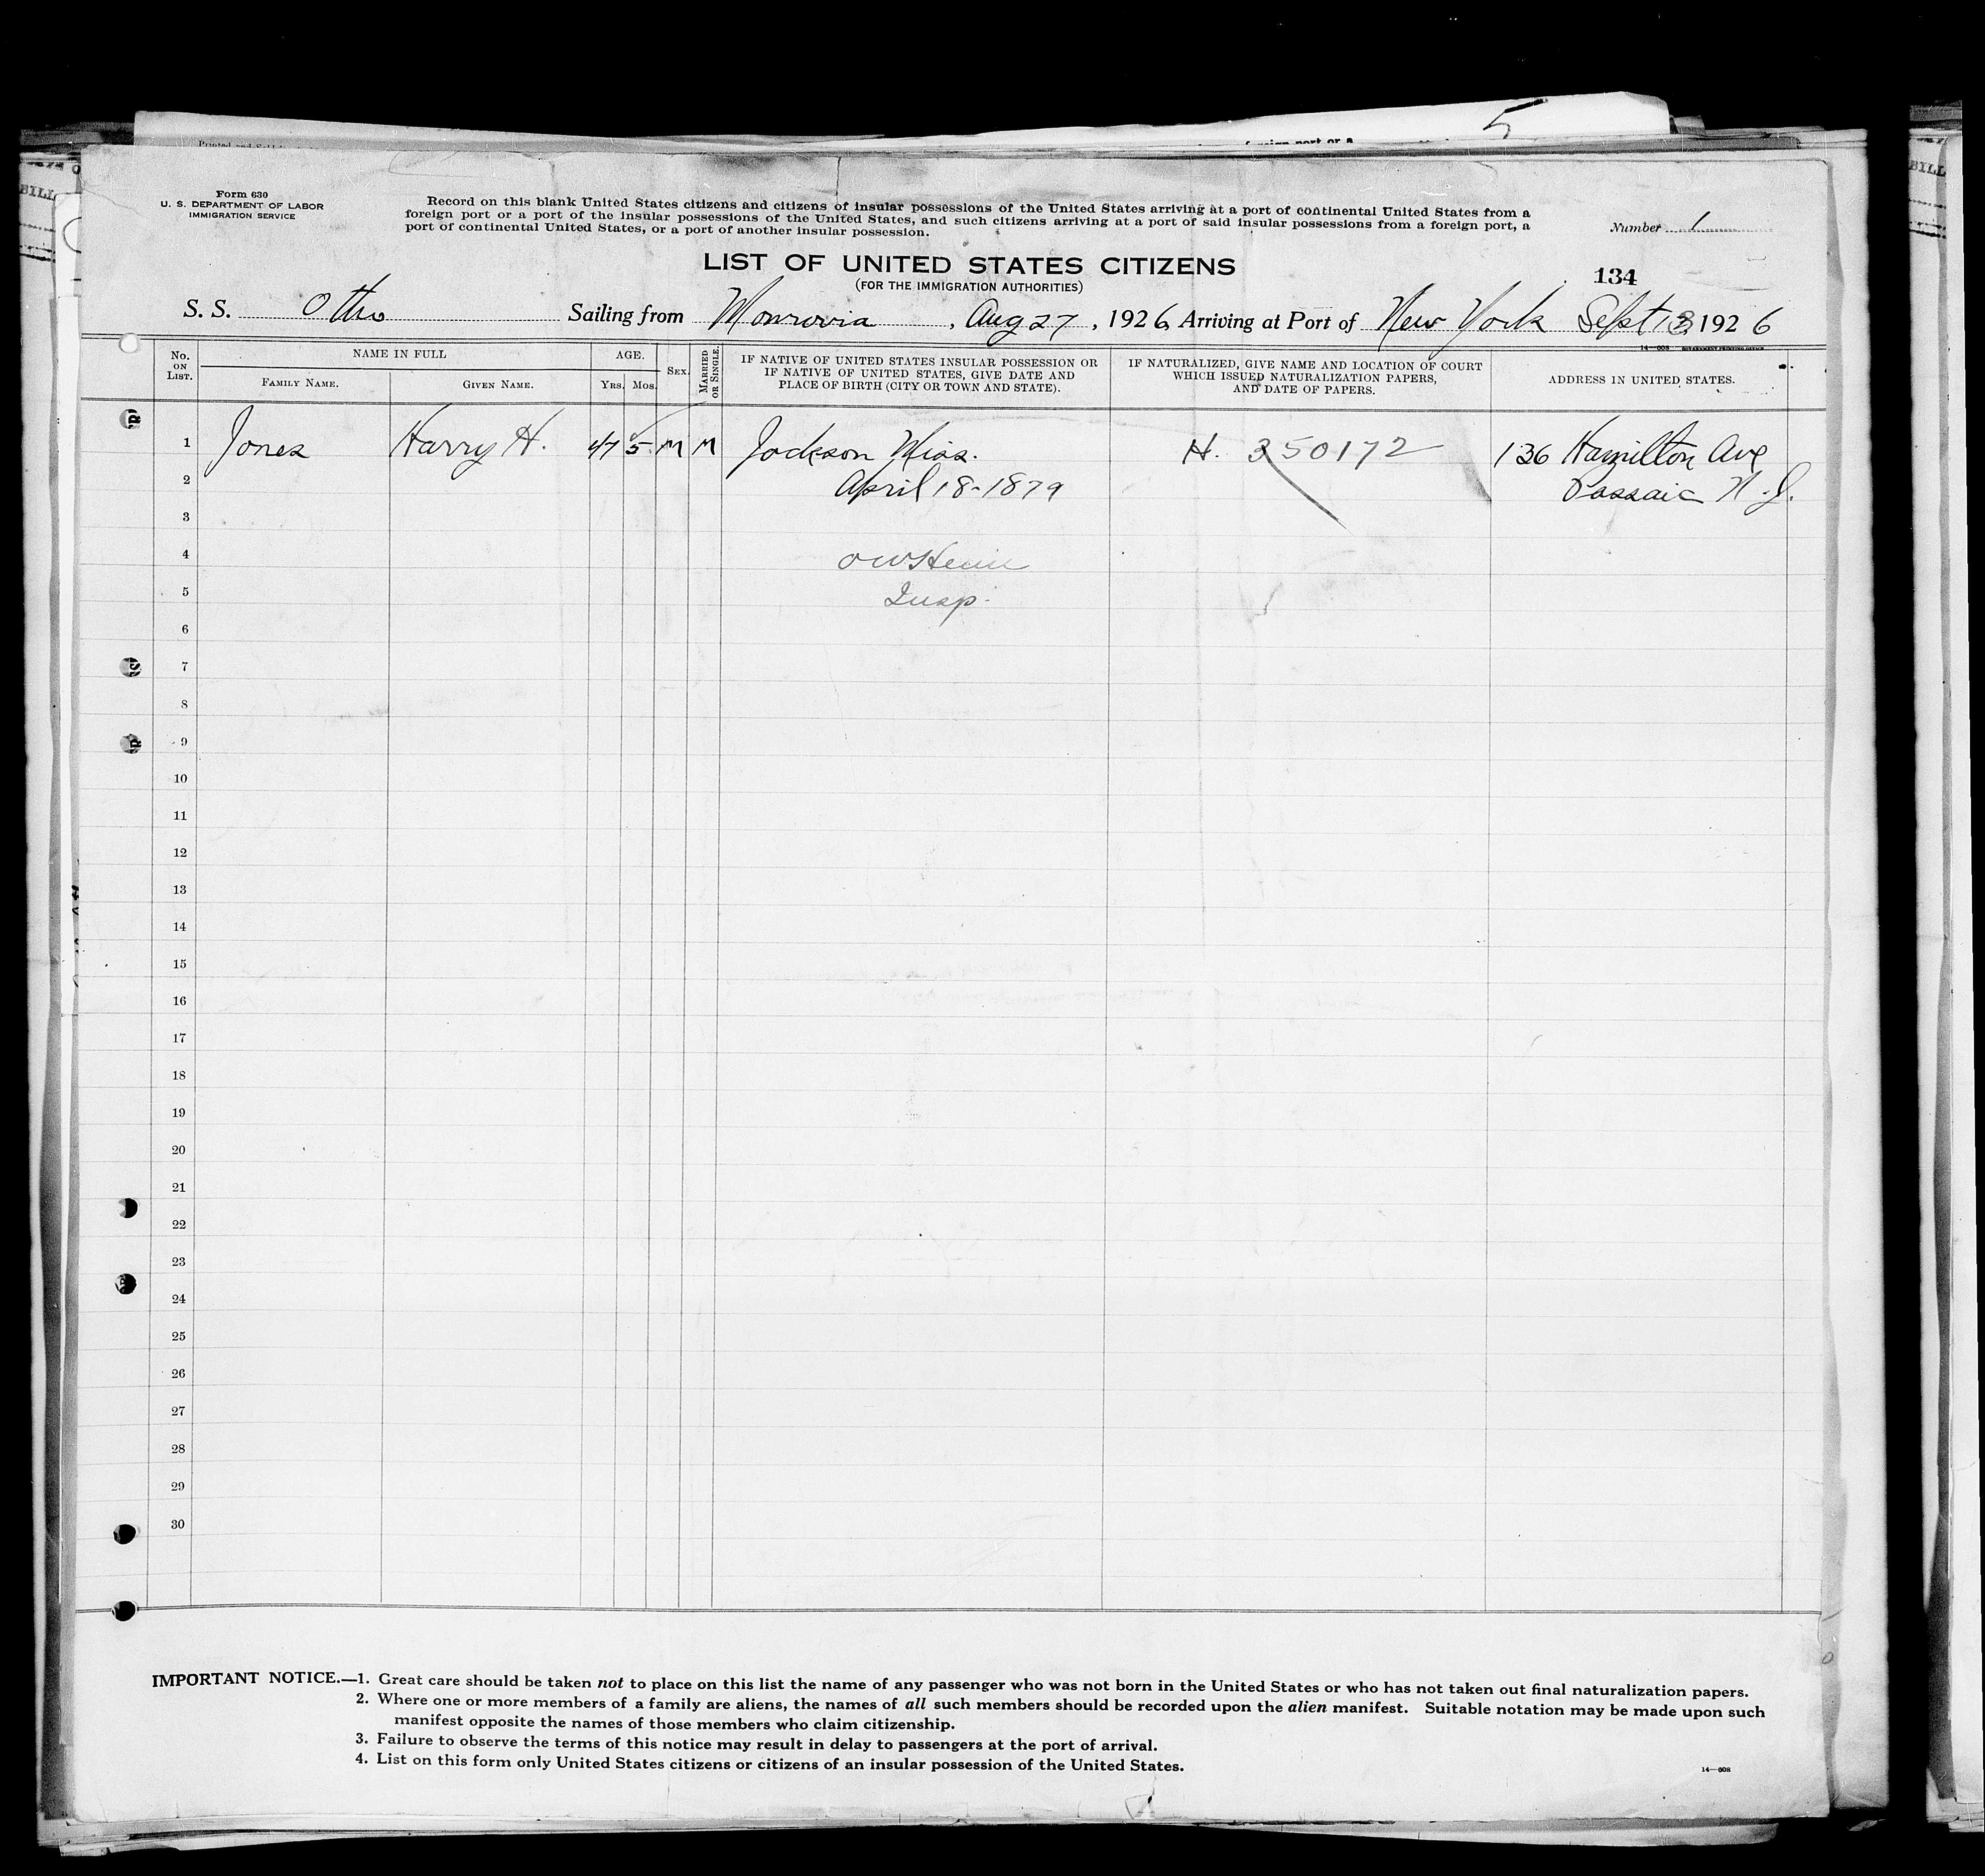 5
foreign port or a
Form 630
U. S. DEPARTMENT OF LABOR
IMMIGRATION SERVICE
Record on this blank United States citizens and citizens of insular possessions of the United States arriving at a port of continental United States from a
foreign port or a port of the insular possessions of the United States, and such citizens arriving at a port of said insular possessions from a foreign port, a
port of continental United States, or a port of another insular possession.
Number 1
LIST OF UNITED STATES CITIZENS
(FOR THE IMMIGRATION AUTHORITIES)
134
S. S. Otho Sailing from Monrovia, Aug 27, 1926, Arriving at Port of New York Sept 13 1926
14—608 GOVERNMENT PRINTING OFFICE
No. ON LIST. NAME IN FULL AGE. SEX. MARRIED OR SINGLE. IF NATIVE OF UNITED STATES INSULAR POSSESSION OR IF NATIVE OF UNITED STATES, GIVE DATE AND PLACE OF BIRTH (CITY OR TOWN AND STATE). IF NATURALIZED, GIVE NAME AND LOCATION OF COURT WHICH ISSUED NATURALIZATION PAPERS, AND DATE OF PAPERS. ADDRESS IN UNITED STATES.
FAMILY NAME. GIVEN NAME. Yrs. Mos.
1 Jones Harry H. 47 5 M M Jackson Miss. H. 350172 136 Hamilton Ave
2 April 18-1879 Passaic N.J.
3
4
5 Insp.
6
7
8
9
10
11
12
13
14
15
16
17
18
19
20
21
22
23
24
25
26
27
28
29
30
IMPORTANT NOTICE.—1. Great care should be taken not to place on this list the name of any passenger who was not born in the United States or who has not taken out final naturalization papers.
2. Where one or more members of a family are aliens, the names of all such members should be recorded upon the alien manifest. Suitable notation may be made upon such
manifest opposite the names of those members who claim citizenship.
3. Failure to observe the terms of this notice may result in delay to passengers at the port of arrival.
4. List on this form only United States citizens or citizens of an insular possession of the United States.
14—608